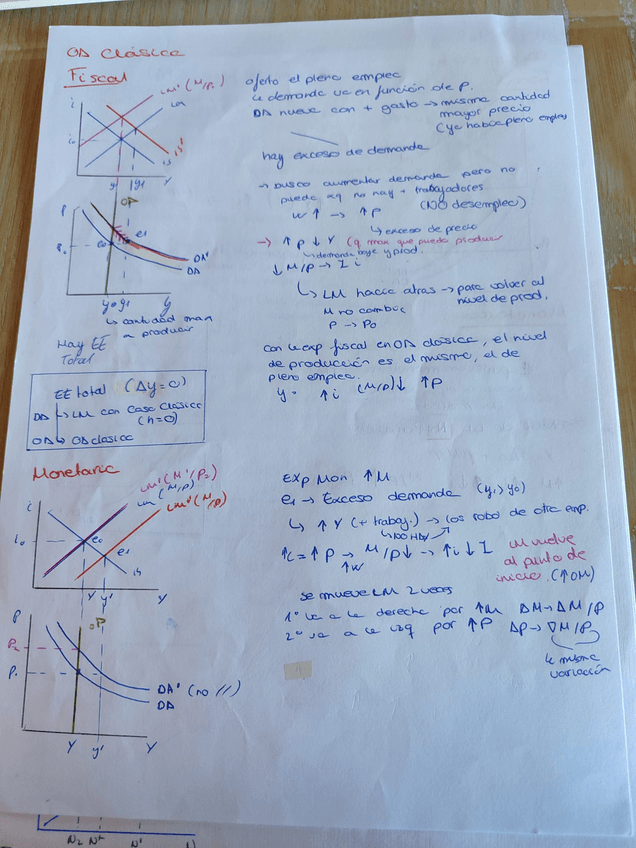 OA Clásica
Fiscal
i
LM' (M/P.)
LM
i0
IS'
IS
y y1 Y
oferta el pleno empleo
la demanda va en función de P.
DA nueva con + gasto → misma cantidad
mayor precio
(ya había pleno empleo
hay exceso de demanda
→ busco aumentar demanda pero no
puede xq no hay + trabajadores
W ↑ → ↑ P (NO desempleo)
↳ exceso de precio
→ ↑ P ↓ Y (q max que puedo producir
↳ demanda baja y prod.
↓ M/P → I i
↳ LM hacia atras → para volver al
nivel de prod.
M no cambia
P → P0
Con la exp fiscal en OA clásica, el nivel
de producción es el mismo, el de
pleno empleo.
y = ↑ i (M/P) ↓ ↑ P
P
OA
P0
e0 e1
DA'
DA
y0 y1 y
↳ cantidad max
a producir
Hay EE
Total
EE total (Δy = 0)
DA ↳ LM con Caso Clásico
(h=0)
OA ↳ OA clásica
Monetaria
i
LM' (M'/P2)
LM (M/P)
LM' (M'/P)
i0
e0
e1
IS
Y y' Y
EXP Mon ↑ M
e1 → Exceso demanda (y1 > y0)
↳ ↑ Y (+ trabaj.) → los robo de otra emp.
↳ NO HAY
↑ C = ↑ P → M/P ↓ → ↑ i ↓ I
↑ W
LM vuelve
al punto de
inicio. (↑ OM)
Se mueve LM 2 veces
1º va a la derecha por ↑ M ΔM → Δ M/P
2º va a la izq por ↑ P ΔP → ∇ M/P
la misma
variación
P
OA
P2
P.
DA' (no //)
DA
Y y' Y
N2 N* N'